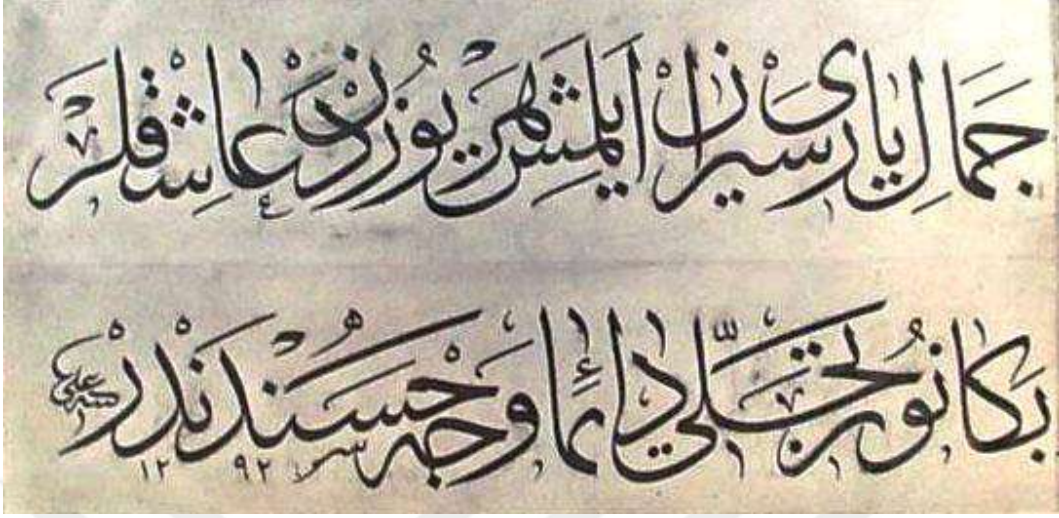 جمال ياری سيران ايلمش هر يوزدن عاشقلر
بكا نور تجلّی دائما وجه حسندندر
١٢ ٩٢